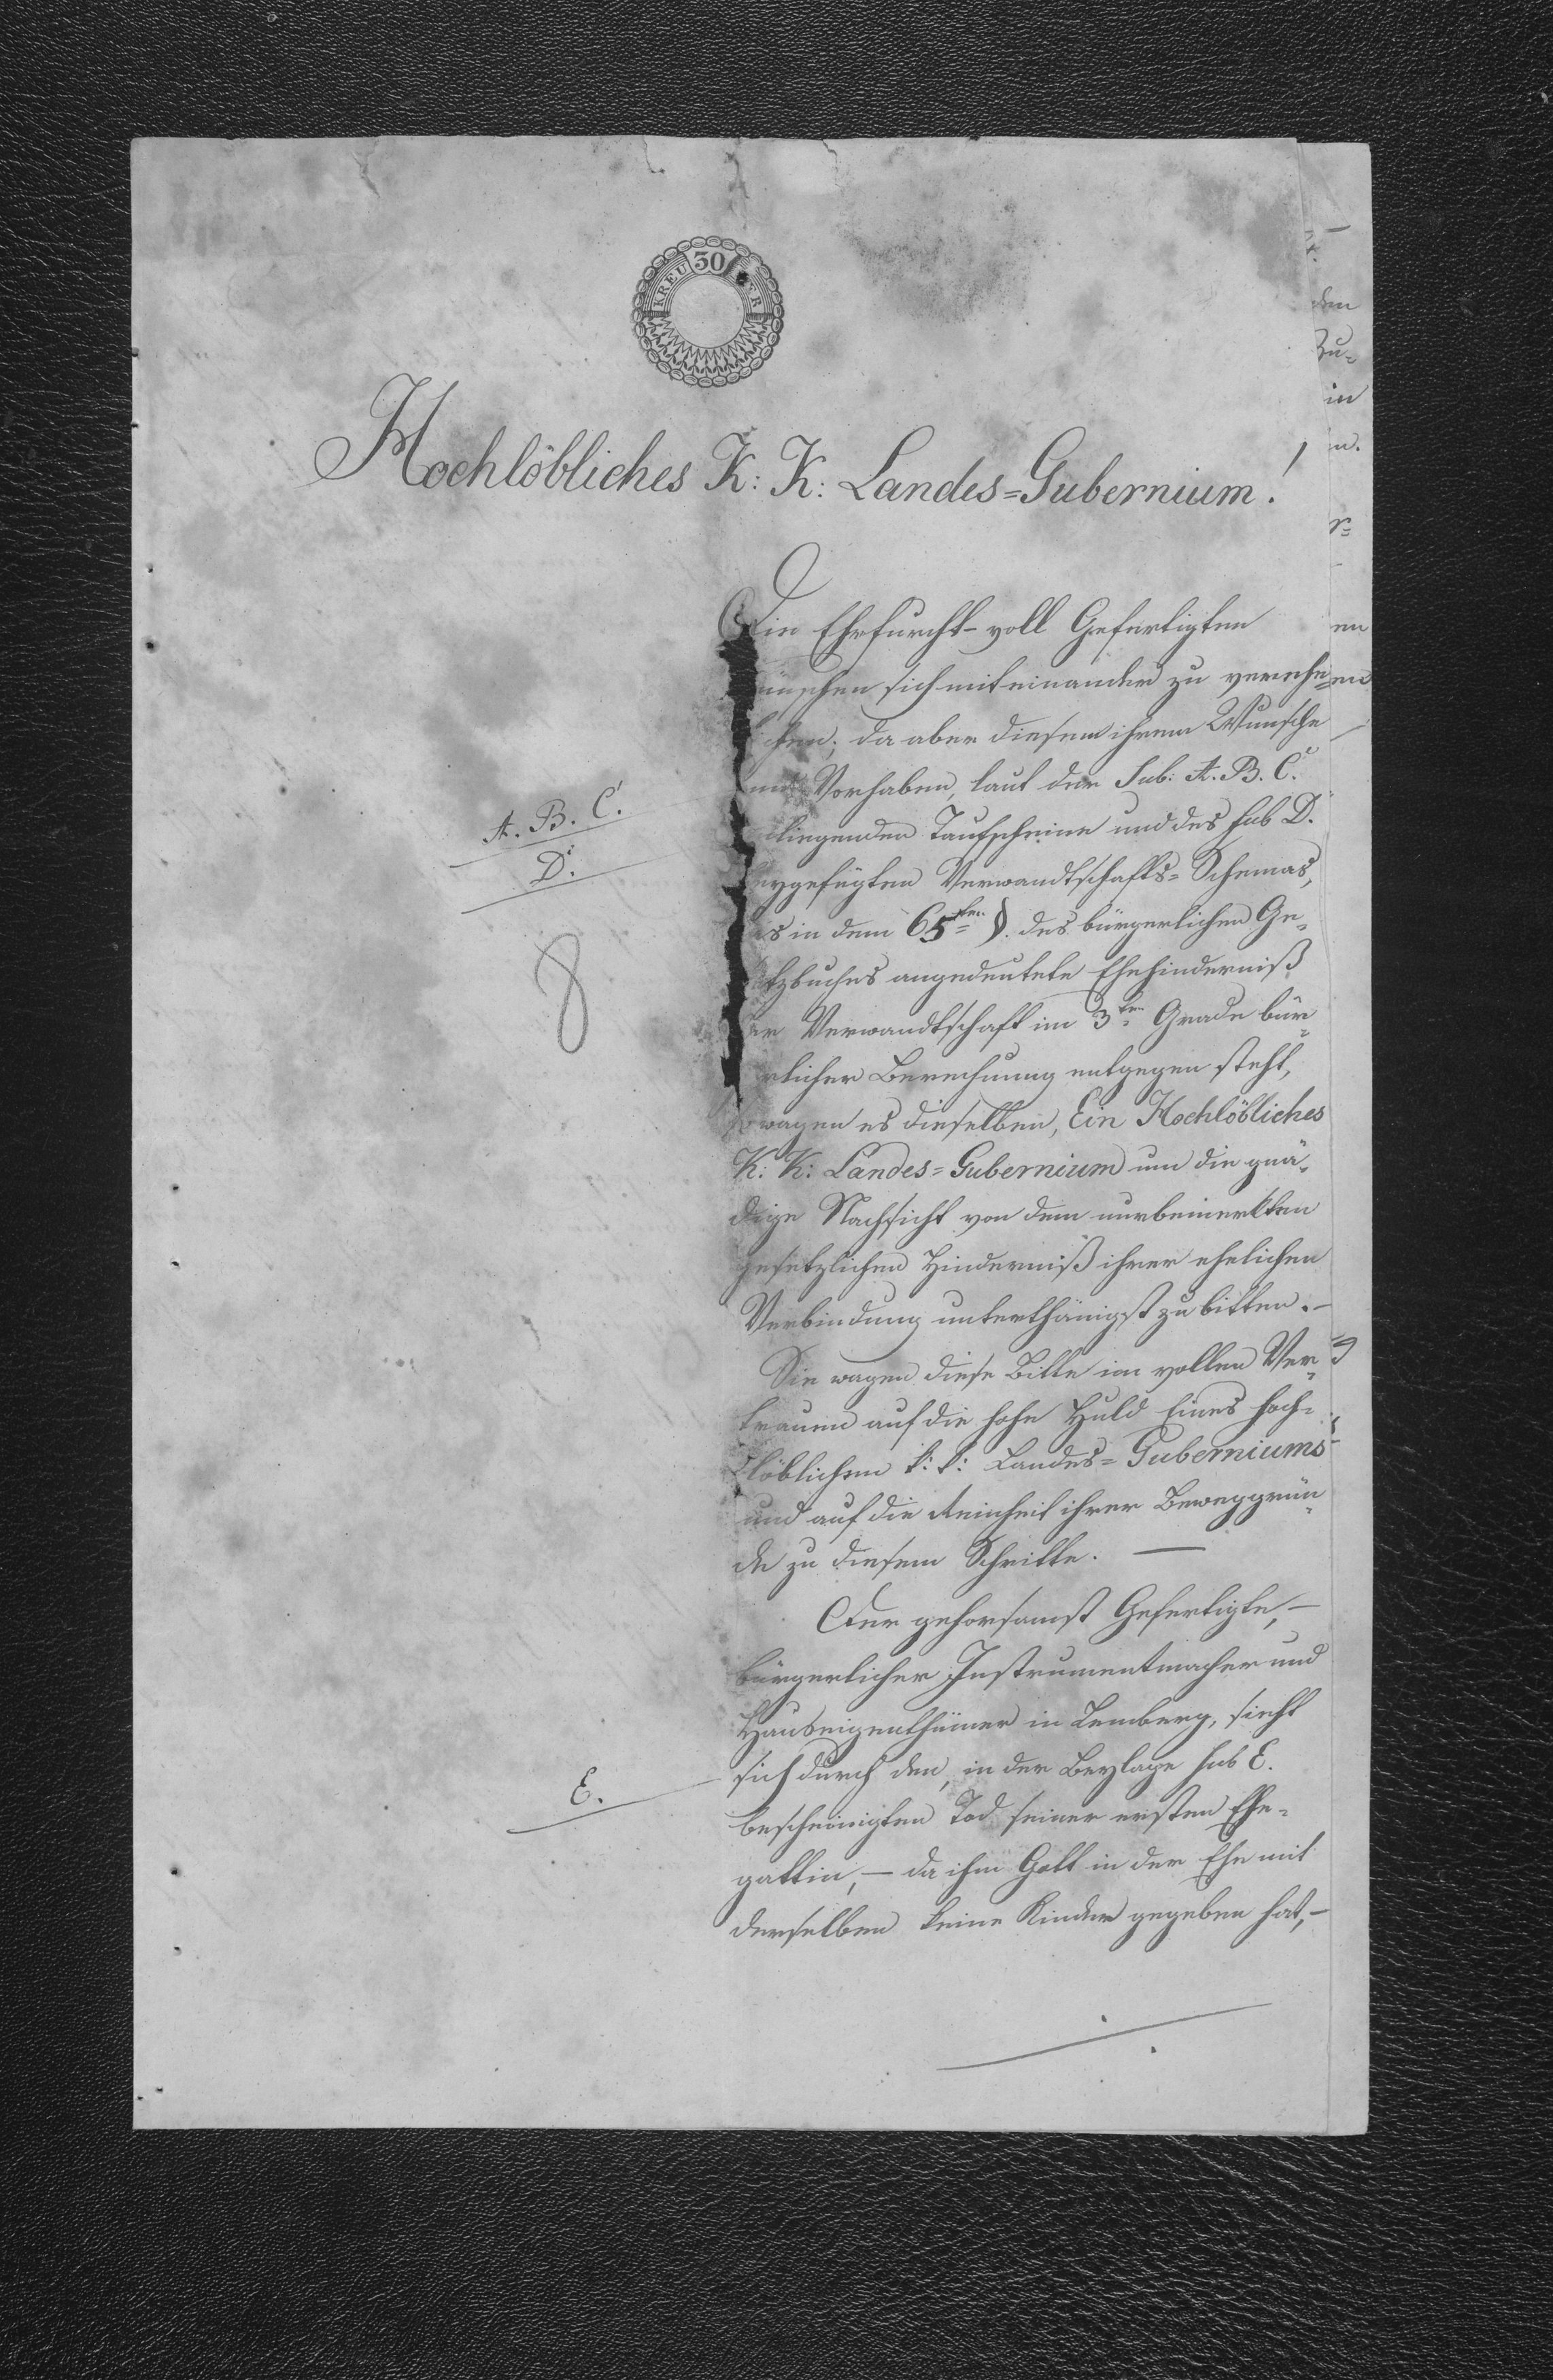 30 KREU R
Hochlöbliches K: K: Landes=Gubernium!
Die Ehrfurcht-voll Gefertigten
ünschen sich miteinander zu verehe=
chen; da aber diesem ihrem Wunsche
und Vorhaben, laut der Sub: A. B. C.
A. B. C.
liegenden Taufscheine und des sub D.
D.
eygefügten Verwandtschafts=Schemas,
as in dem 65ten §. des bürgerlichen Ge=
etzbuches angedeutete Ehehinderniß
er Verwandtschaft im 3ten Grade bür=
rlicher Berechnung entgegen steht,
so wagen es dieselben, Ein Hochlöbliches
K: K: Landes=Gubernium um die gnä=
dige Nachsicht von dem nurbemerkten
gesetzlichen Hinderniß ihrer ehelichen
Verbindung unterthänigst zu bitten.—
Sie wagen diese Bitte im vollen Ver=
trauen auf die hohe Huld Eines hoch=
löblichen k: k: Landes=Guberniums
und auf die Reinheit ihrer Beweggrün=
de zu diesem Schritte. —
Der gehorsamst Gefertigte, —
bürgerlicher Instrumentmacher und
Hauseigenthümer in Lemberg, sieht
sich durch den, in der Beylage sub E.
E.
bescheinigten Tod seiner ersten Ehe=
gattin, — da ihm Gott in der Ehe mit
derselben keine Kinder gegeben hat, —